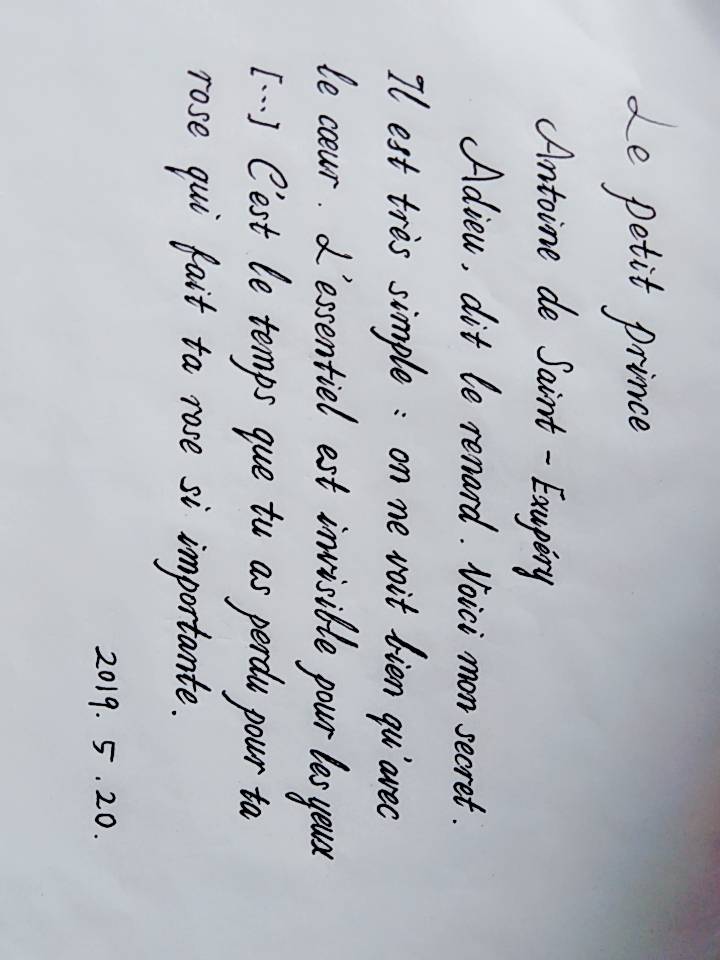 Le petit prince
Antoine de Saint-Exupéry
Adieu, dit le renard. Voici mon secret.
Il est très simple : on ne voit bien qu'avec
le cœur. L'essentiel est invisible pour les yeux
[...] C'est le temps que tu as perdu pour ta
rose qui fait ta rose si importante.
2019. 5. 20.